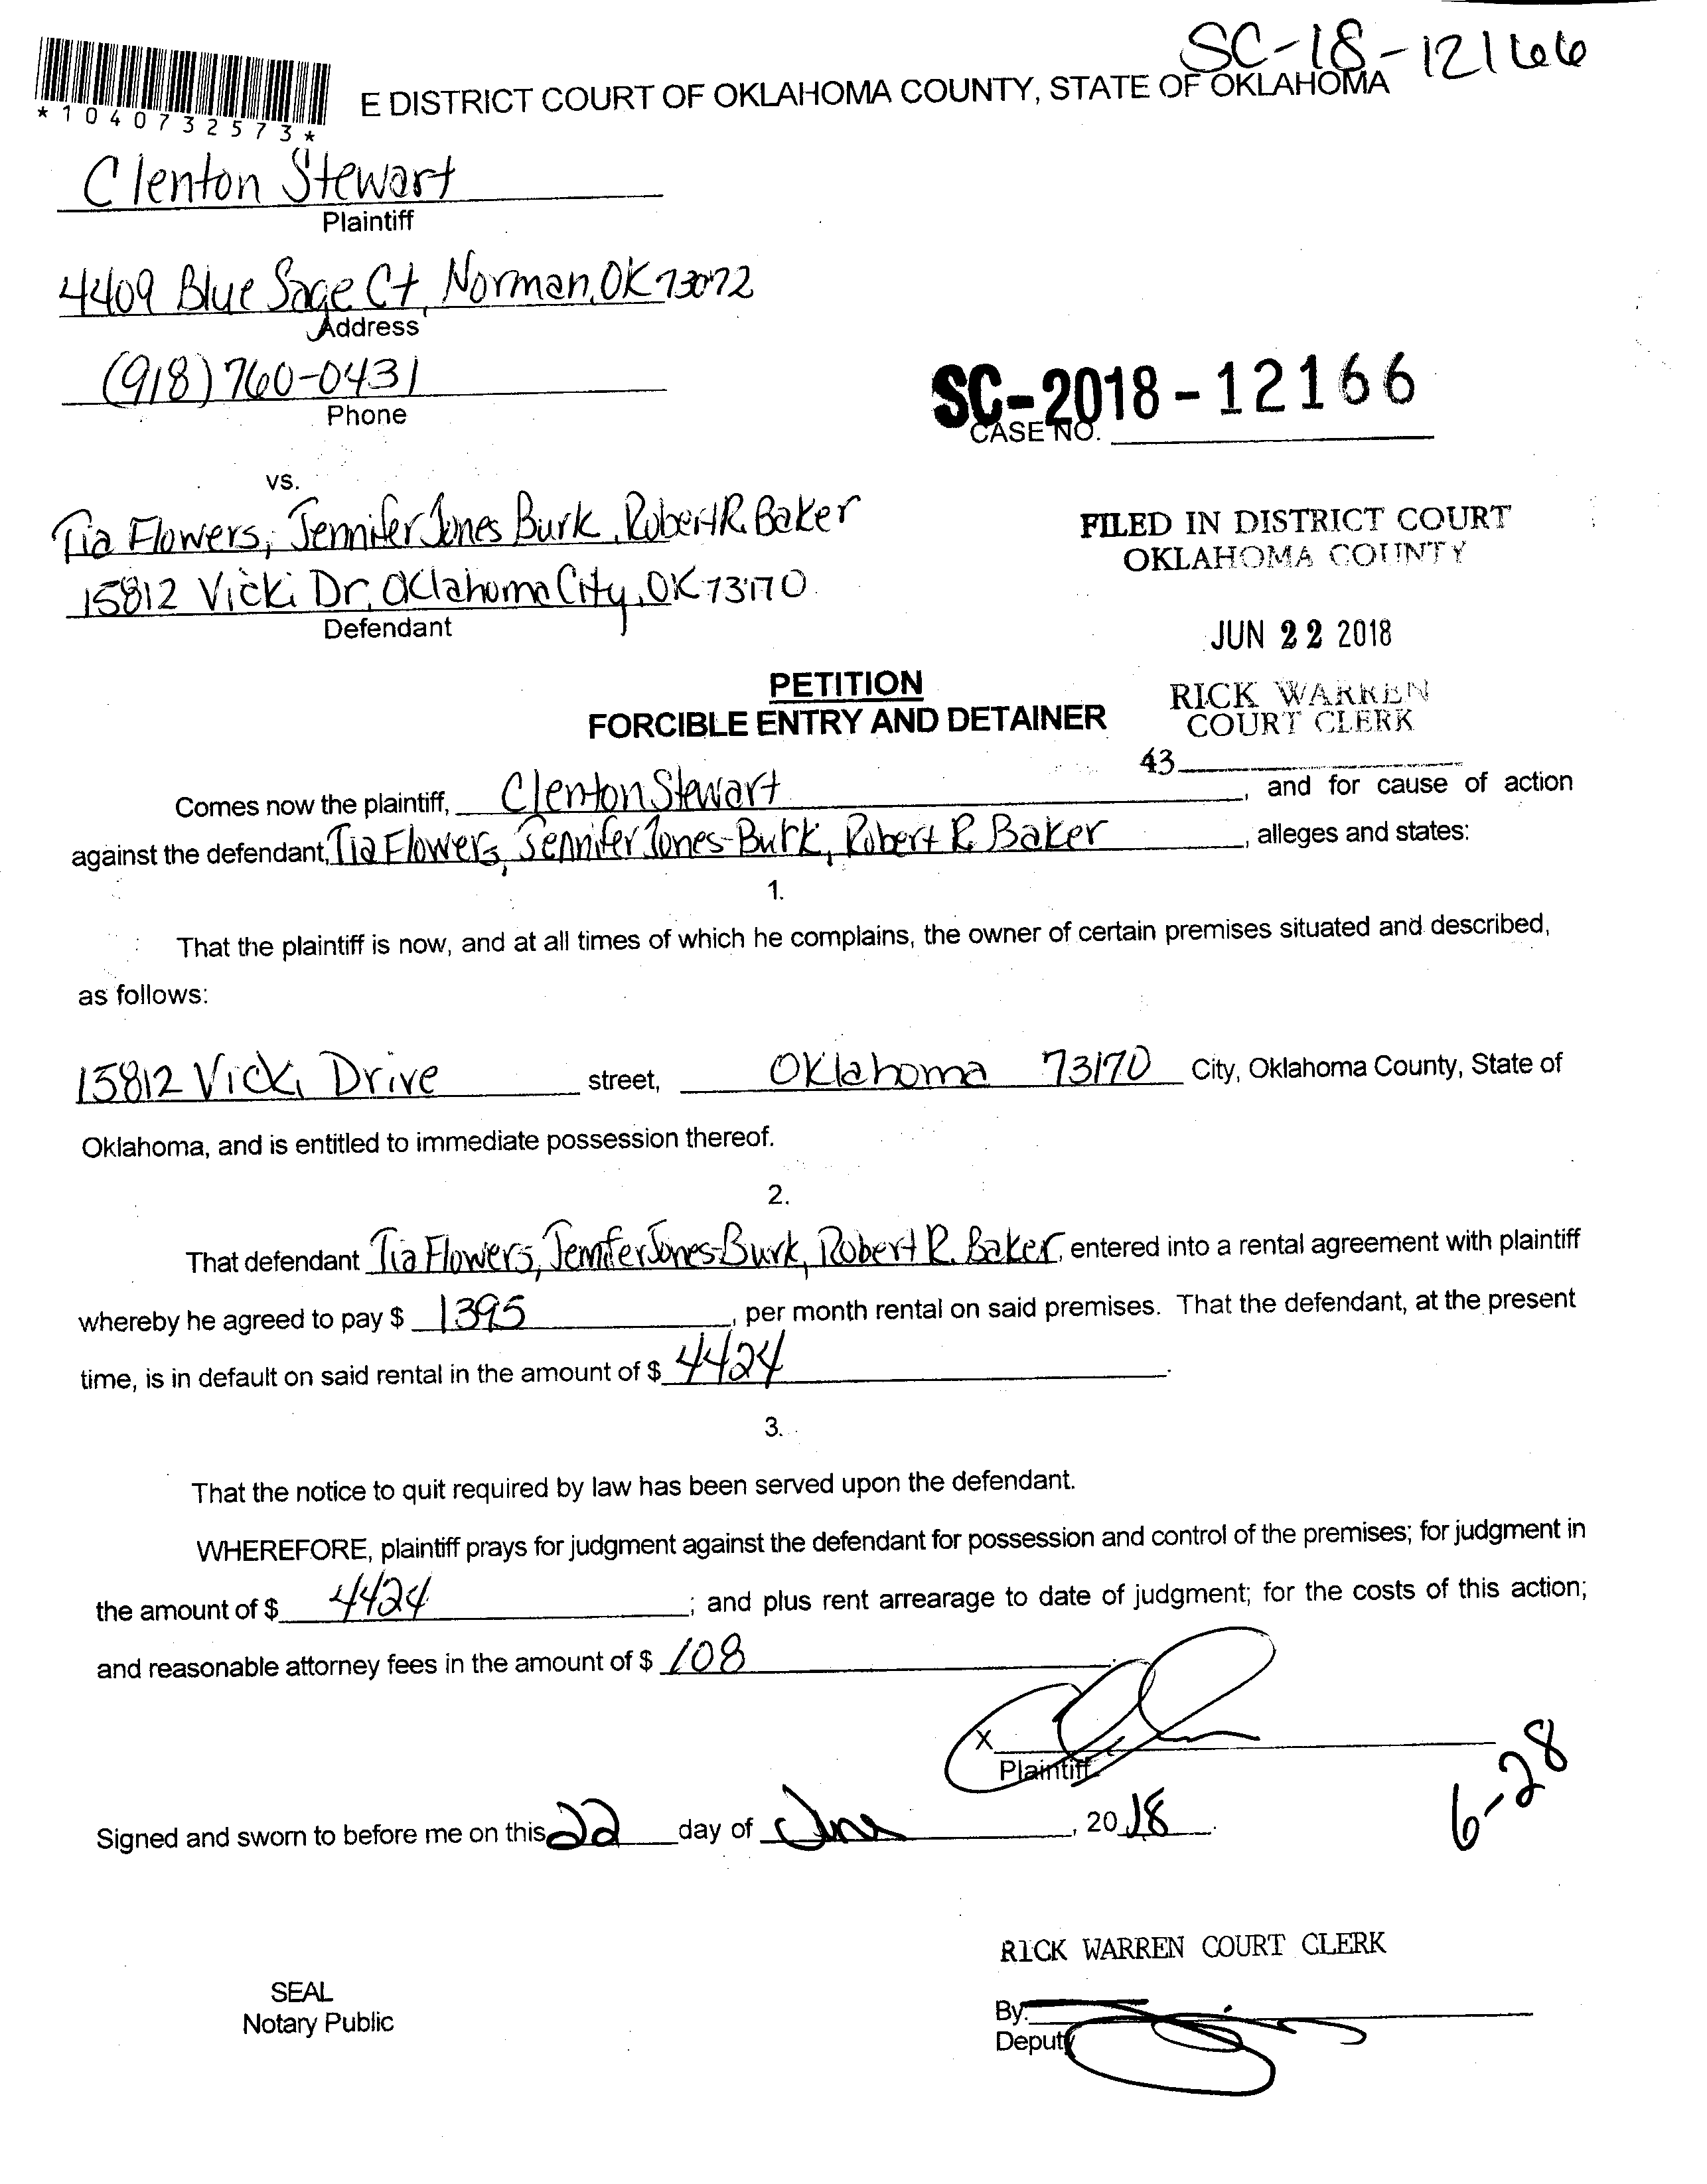 SC-18-12166
*1040732573*
E DISTRICT COURT OF OKLAHOMA COUNTY, STATE OF OKLAHOMA
Clenton Stewart
Plaintiff
4409 Blue Sage Ct, Norman, OK 73072
Address
(918) 760-0431
Phone
SC-2018-12166
CASE NO.
vs.
Tia Flowers, Jennifer Jones Burk, Robert R. Baker
15812 Vicki Dr, Oklahoma City, OK 73170
Defendant
FILED IN DISTRICT COURT
OKLAHOMA COUNTY
JUN 22 2018
RICK WARREN
COURT CLERK
43
PETITION
FORCIBLE ENTRY AND DETAINER
Comes now the plaintiff, Clenton Stewart, and for cause of action
against the defendant, Tia Flowers, Jennifer Jones-Burk, Robert R. Baker, alleges and states:
1.
That the plaintiff is now, and at all times of which he complains, the owner of certain premises situated and described,
as follows:
15812 Vicki Drive street, Oklahoma 73170 City, Oklahoma County, State of
Oklahoma, and is entitled to immediate possession thereof.
2.
That defendant Tia Flowers, Jennifer Jones-Burk, Robert R. Baker, entered into a rental agreement with plaintiff
whereby he agreed to pay $ 1395, per month rental on said premises. That the defendant, at the present
time, is in default on said rental in the amount of $ 4424.
3.
That the notice to quit required by law has been served upon the defendant.
WHEREFORE, plaintiff prays for judgment against the defendant for possession and control of the premises; for judgment in
the amount of $ 4424; and plus rent arrearage to date of judgment; for the costs of this action;
and reasonable attorney fees in the amount of $ 108.
X
Plaintiff
6-28
Signed and sworn to before me on this 22 day of June, 2018.
RICK WARREN COURT CLERK
SEAL
Notary Public
By:
Deputy